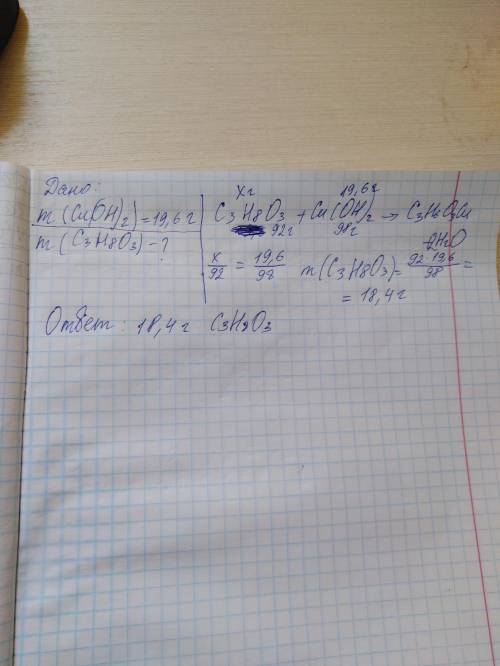 Дано:
m (Cu(OH)2) = 19,6 г
m (C3H8O3) - ?
xг 19,6г
C3H8O3 + Cu(OH)2 → C3H6O3Cu
92г 98г 2H2O
x/92 = 19,6/98 m(C3H8O3) = 92·19,6/98 =
= 18,4 г
Ответ: 18,4 г C3H8O3